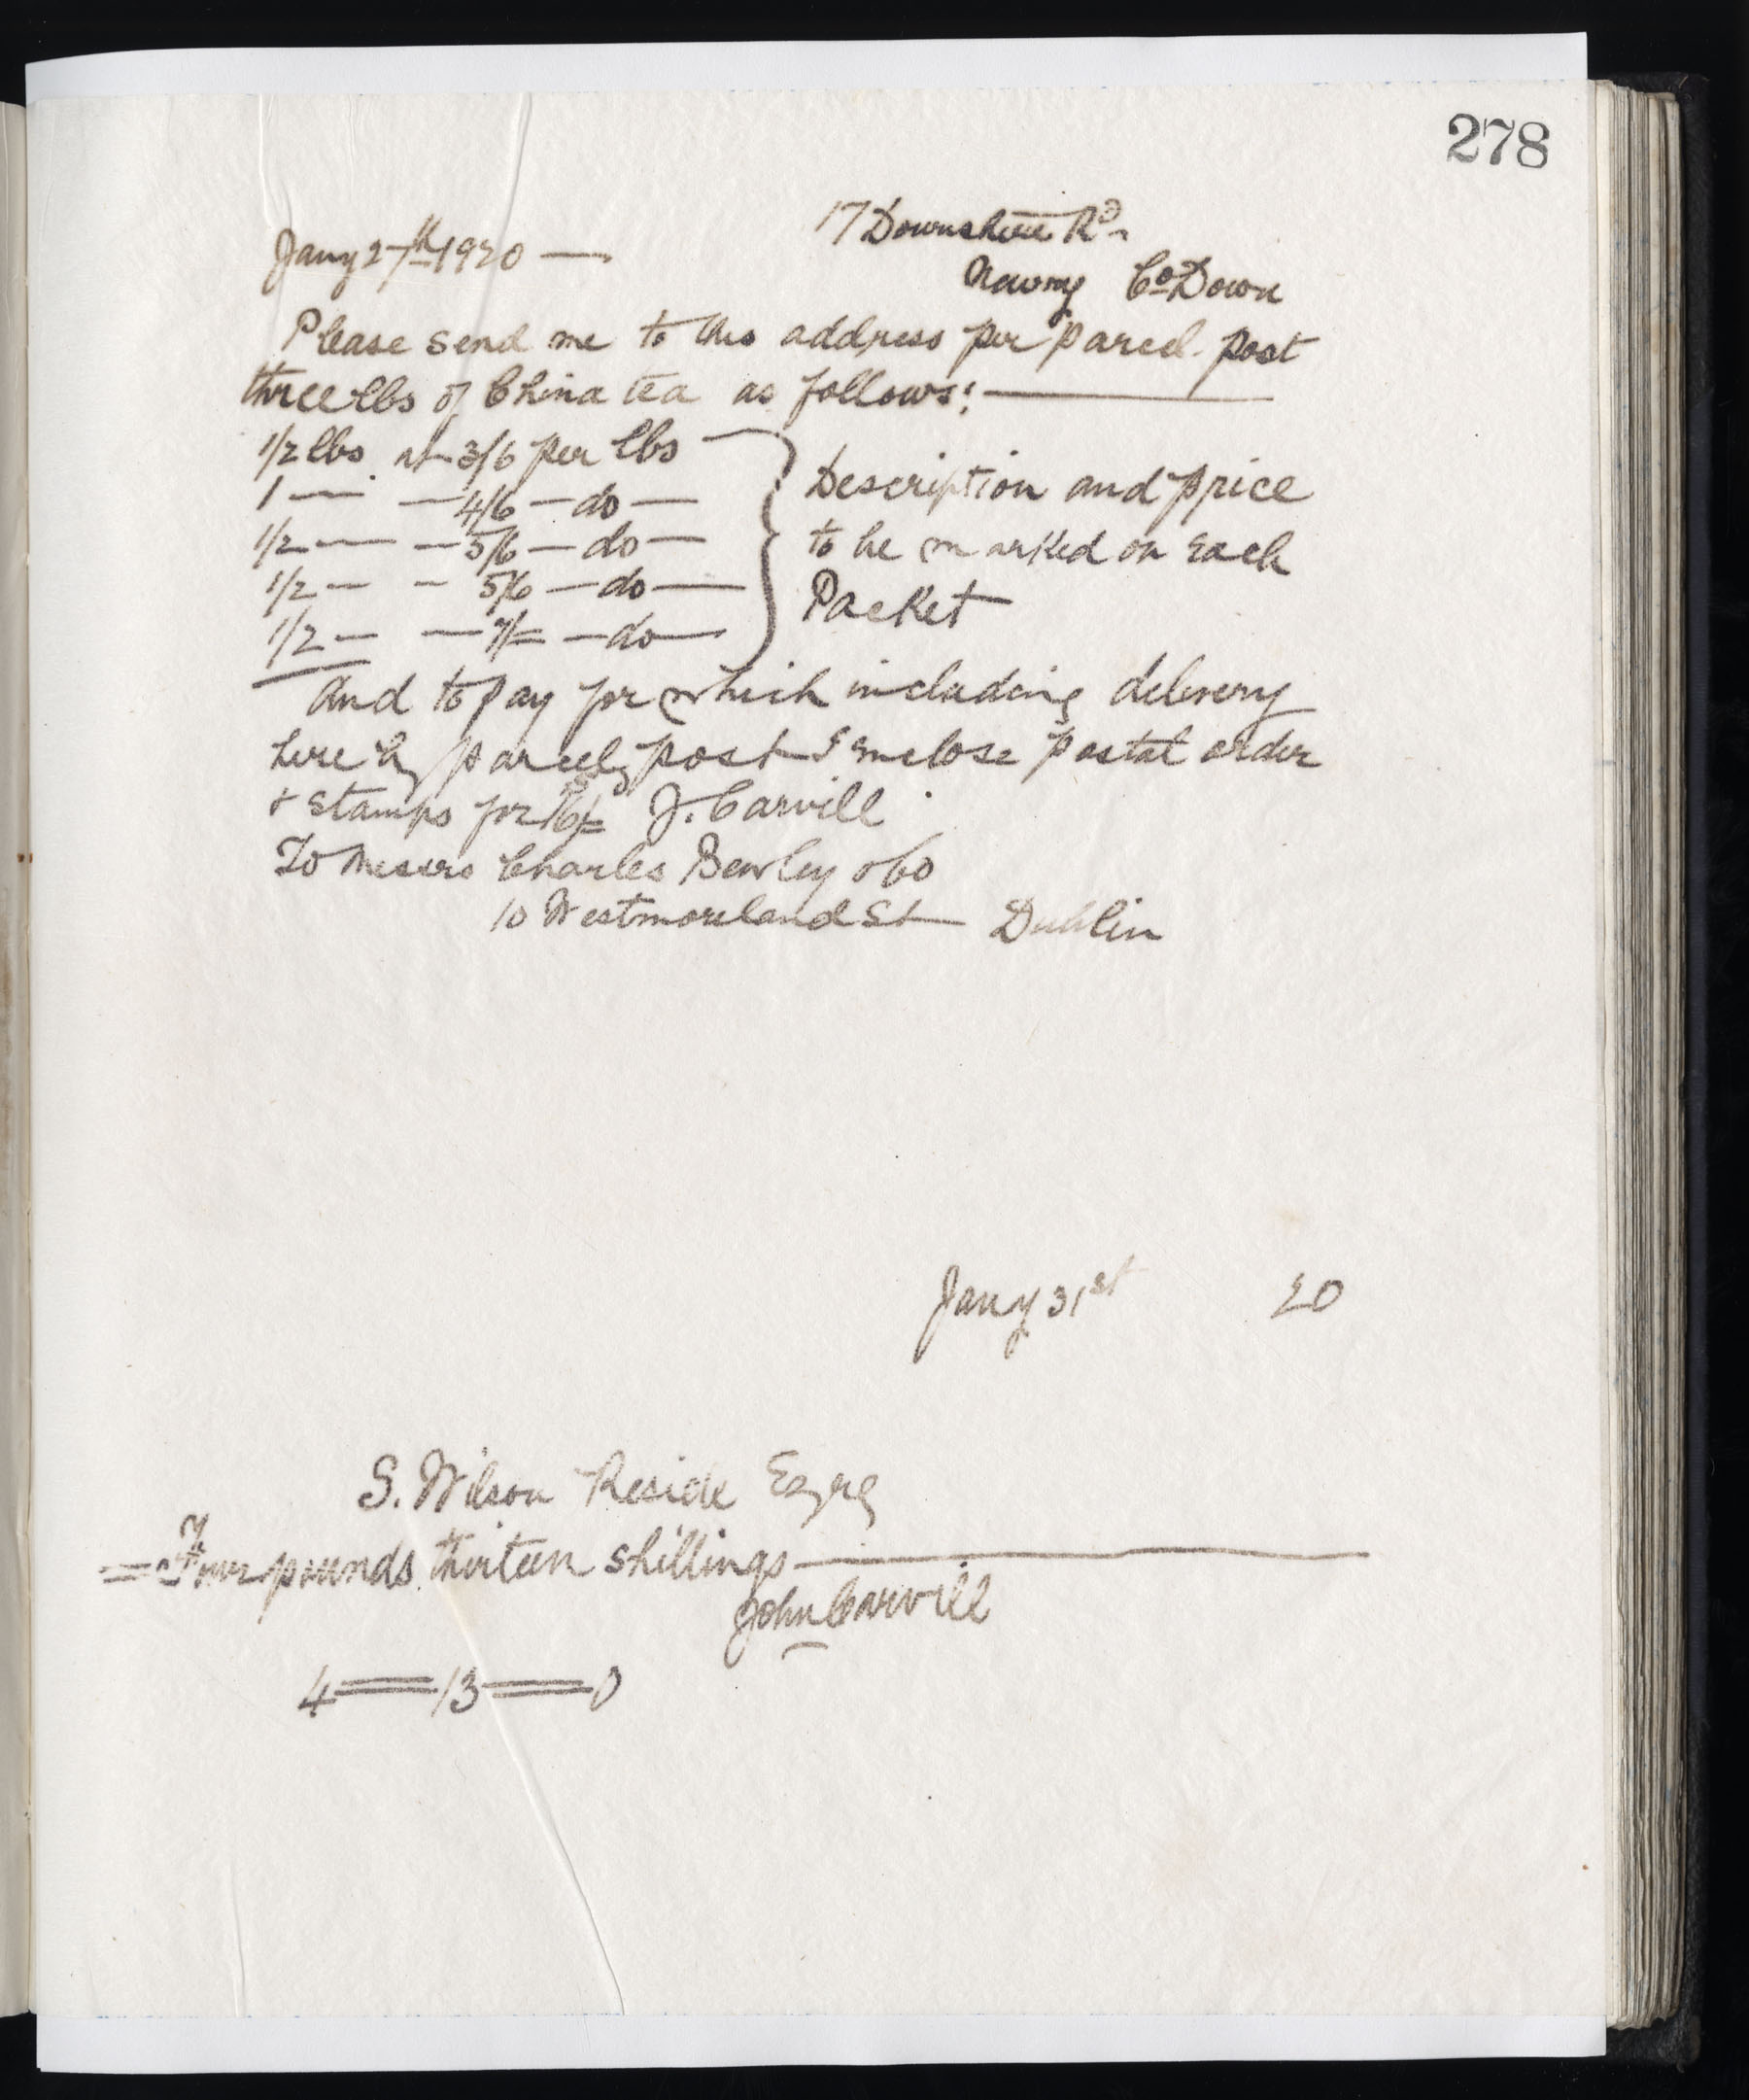 278
Jany 27th 1920 —
17 Downshire Rd
Newry Co Down
Please send me to this address per parcel post
three lbs of China tea as follows: —
1/2 lbs at 3/6 per lbs —
1 — — 4/6 — do —
1/2 — — 5/6 — do —
1/2 — — 5/6 — do —
1/2 — — 7/= — do —
Description and price
to be marked on each
Packet
And to pay for which including delivery
here by parcels post I enclose postal order
& stamps for J. Carvill
To Messrs Charles Bewley & Co
10 Westmoreland St Dublin
Jany 31st 20
S. Wilson Reside Esqre
= Four pounds thirteen shillings —
John Carvill
4 = 13 = 0